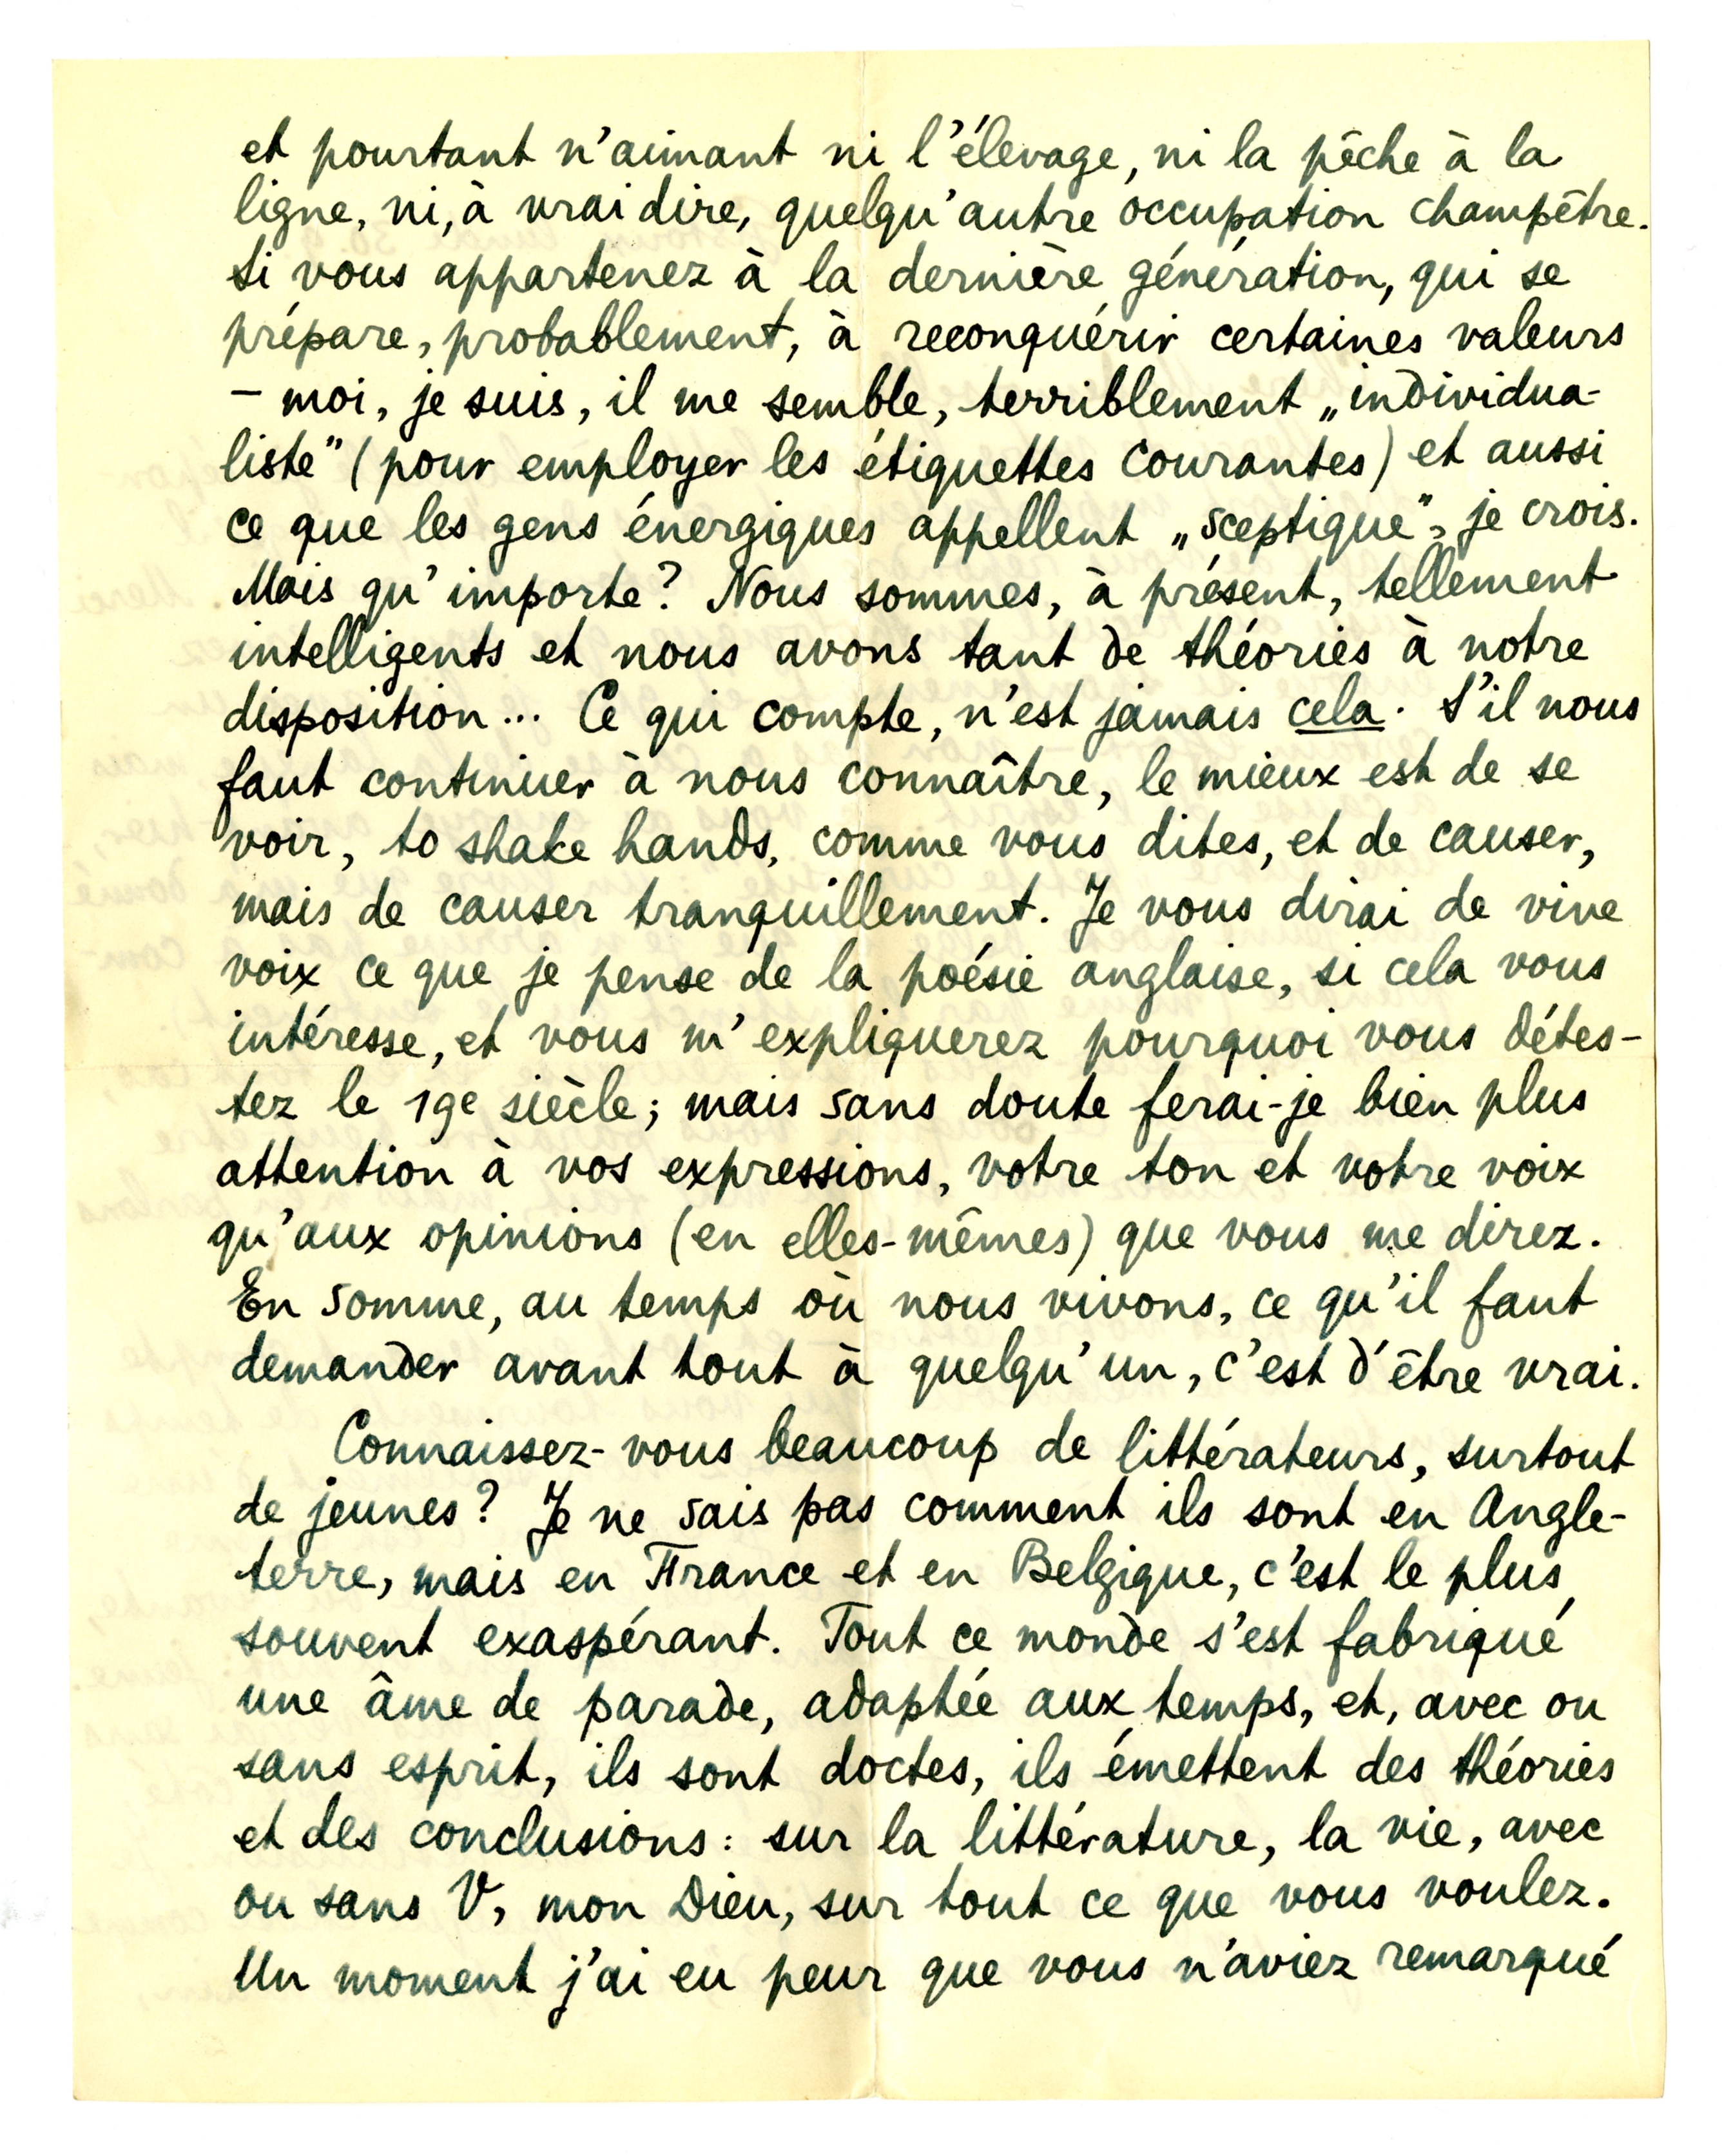 et pourtant n'aimant ni l'élevage, ni la pêche à la
ligne, ni, à vrai dire, quelqu'autre occupation champêtre.
Si vous appartenez à la dernière génération, qui se
prépare, probablement, à reconquérir certaines valeurs
– moi, je suis, il me semble, terriblement „individua-
liste” (pour employer les étiquettes courantes) et aussi
ce que les gens énergiques appellent „sceptique”, je crois.
Mais qu'importe? Nous sommes, à présent, tellement
intelligents et nous avons tant de théories à notre
disposition... Ce qui compte, n'est jamais cela. S'il nous
faut continuer à nous connaître, le mieux est de se
voir, to shake hands, comme vous dites, et de causer,
mais de causer tranquillement. Je vous dirai de vive
voix ce que je pense de la poésie anglaise, si cela vous
intéresse, et vous m'expliquerez pourquoi vous détes-
tez le 19e siècle; mais sans doute ferai-je bien plus
attention à vos expressions, votre ton et votre voix
qu'aux opinions (en elles-mêmes) que vous me direz.
En somme, au temps où nous vivons, ce qu'il faut
demander avant tout à quelqu'un, c'est d'être vrai.
Connaissez-vous beaucoup de littérateurs, surtout
de jeunes? Je ne sais pas comment ils sont en Angle-
terre, mais en France et en Belgique, c'est le plus
souvent exaspérant. Tout ce monde s'est fabriqué
une âme de parade, adaptée aux temps, et, avec ou
sans esprit, ils sont doctes, ils émettent des théories
et des conclusions: sur la littérature, la vie, avec
ou sans V, mon Dieu, sur tout ce que vous voulez.
Un moment j'ai eu peur que vous n'aviez remarqué